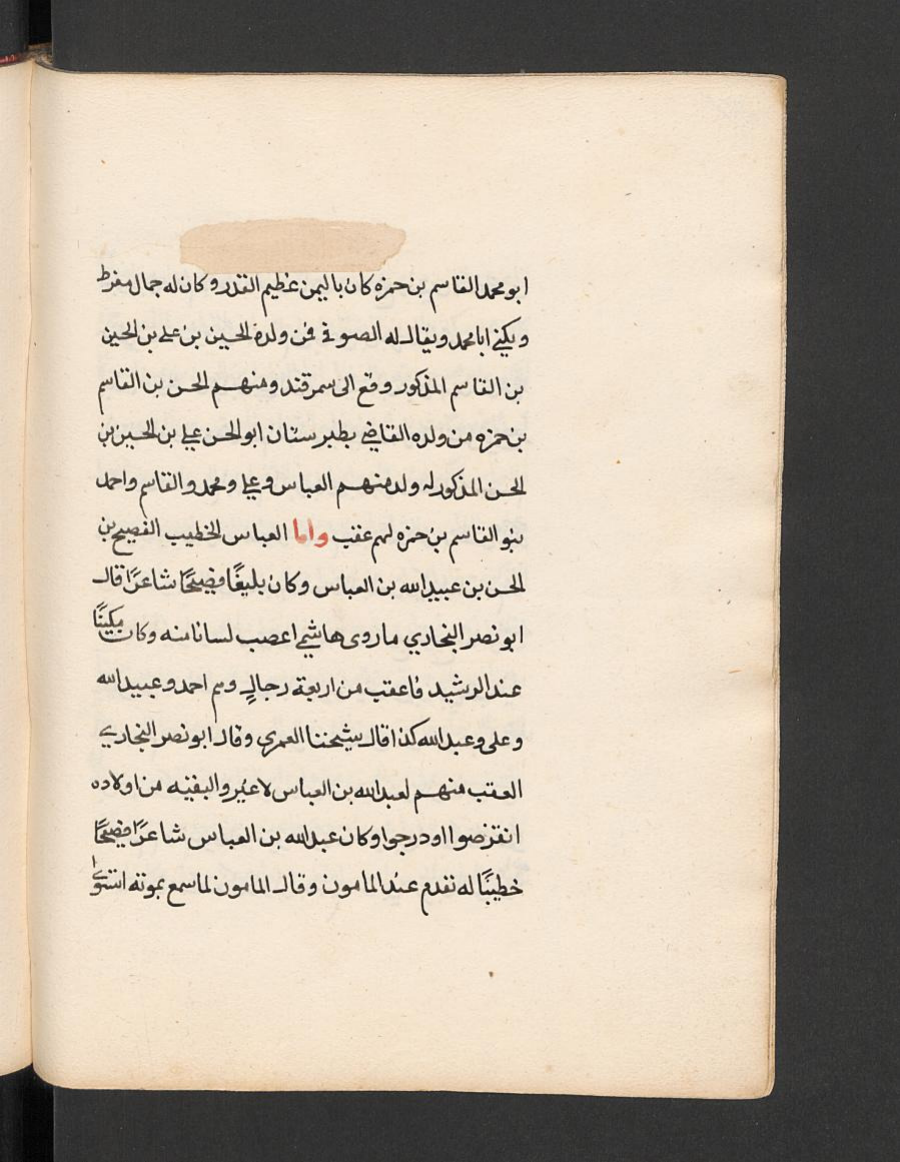 ابو محمد القاسم بن حمزه كان باليمن عظيم القدر وكان له جمال مفرط
ويكنى ابا محمد ويقال له الصوفي فمن ولده الحسين بن علي بن الحسين
بن القاسم المذكور وقع الى سمرقند ومنهم الحسن بن القاسم
بن حمزه من ولده القاضي بطبرستان ابو الحسن علي بن الحسين بن
الحسن المذكور له ولد منهم العباس وعلي ومحمد والقاسم واحمد
بنو القاسم بن حمزه لهم عقب واما العباس الخطيب الفصيح بن
الحسن بن عبيد الله بن العباس وكان بليغًا فصيحًا شاعرًا قال
ابو نصر البخاري ما روى هاشمي اعصب لسانا منه وكان مكينًا
عند الرشيد فاعقب من اربعة رجالٍ وهم احمد وعبيد الله
وعلى وعبد الله كذا قال شيخنا العمري وقال ابو نصر البخاري
العقب منهم لعبد الله بن العباس لا غير والبقيه من اولاده
انقرضوا او درجوا وكان عبد الله بن العباس شاعرًا فصيحًا
خطيبًا له تقدم عند المامون وقال المامون لما سمع بموته استوى